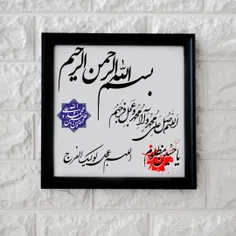 بسم الله الرحمن الرحیم
اللهم صل علی محمد و آل محمد و عجل فرجهم
یا حسین مظلوم
اللهم عجل لولیک الفرج